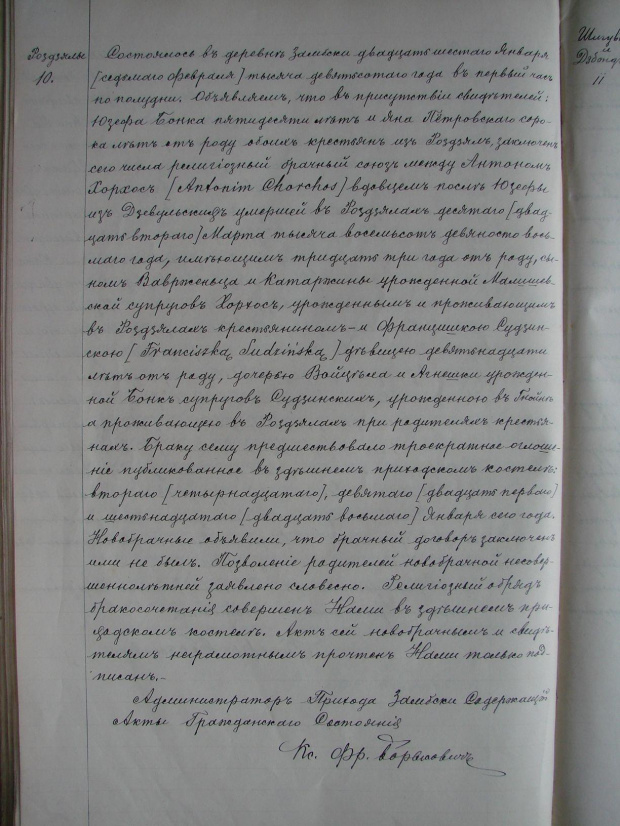 Роздзялы
10.
Состоялось въ деревнѣ Замбски двадцать шестаго Января
[седьмаго Февраля] тысяча девятьсотаго года въ первый часъ
по полудни. Объявляемъ, что въ присутствіи свидѣтелей:
Юзефа Бонка пятидесяти лѣтъ и Яна Петровскаго соро-
ка лѣтъ отъ роду обоихъ крестьянъ изъ Роздзялъ, заключенъ
сего числа религіозный брачный союзъ между Антономъ
Хорхосъ [Antonim Chorchos] вдовцемъ послѣ Юзефы
изъ умершей въ Роздзялахъ десятаго [двад-
цать втораго] Марта тысяча восемьсотъ девяносто вось-
маго года, имѣющимъ тридцать три года отъ роду, сы-
номъ Ваврженьца и Катаржины урожденной Малишев-
ской супруговъ Хорхосъ, урожденнымъ и проживающимъ
въ Роздзялахъ крестьяниномъ – и Францишкою Судзин-
скою [Franciszką Sudzińską] дѣвицею девятьнадцати
лѣтъ отъ роду, дочерью Войцѣха и Агнешки урожден-
ной Бонкъ супруговъ Судзинскихъ, урожденною въ
а проживающею въ Роздзялахъ при родителяхъ крестья-
нахъ. Браку сему предшествовало троекратное оглаше-
ніе публикованное въ здѣшнемъ приходскомъ костелѣ:
втораго [четырнадцатаго], девятаго [двадцать перваго]
и шестьнадцатаго [двадцать восьмаго] Января сего года.
Новобрачные объявили, что брачный договоръ заключенъ
ими не былъ. Позволеніе родителей новобрачной несовер-
шеннолѣтней заявлено словесно. Религіозный обрядъ
бракосочетанія совершенъ Нами въ здѣшнемъ при-
ходскомъ костелѣ. Актъ сей новобрачнымъ и свидѣ-
телямъ неграмотнымъ прочтенъ Нами только под-
писанъ.-
Администраторъ Прихода Замбски Содержащій
Акты Гражданскаго Состоянія
Кс. Фр.
и
11